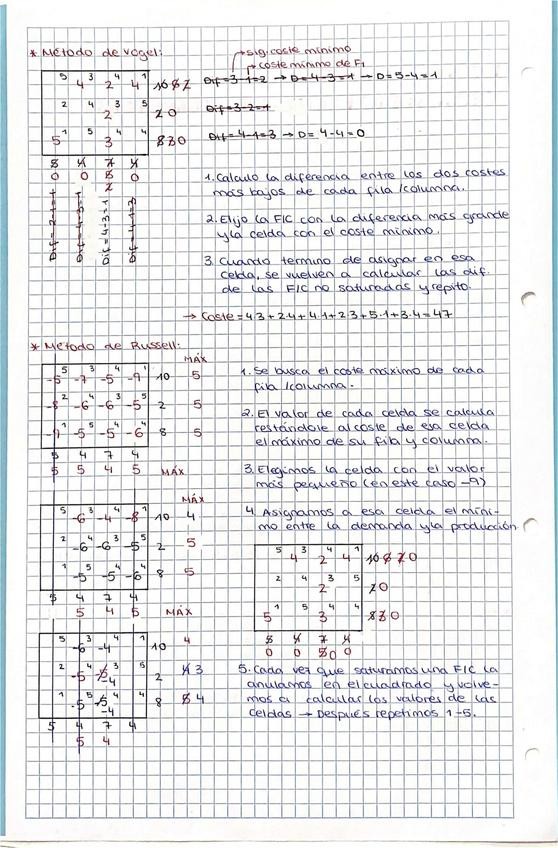 * Método de Vogel:
sig. coste mínimo
coste mínimo de F1
5 3 4 1
4 2 4 10 6 2
Dif=3-1=2 → D=4-3=1 → D=5-4=1
2 4 3 5
2 2 0
Dif=3-2=1
1 5 4 4
5 3 8 3 0
Dif=4-1=3 → D=4-4=0
5 4 7 4
0 0 5 0
2
Dif=2-1=1
Dif=4-3=1
Dif=4-3=1
Dif=4-1=3
1. Calculo la diferencia entre los dos costes
más bajos de cada fila/columna.
2. Elijo la F/C con la diferencia más grande
y la celda con el coste mínimo.
3. Cuando termino de asignar en esa
celda, se vuelven a calcular las dif.
de las F/C no saturadas y repito.
→ Coste = 4·3+2·4+4·1+2·3+5·1+3·4=47
* Método de Russell:
MÁX
-5 5 -7 3 -5 4 -9 1 10 5
-8 2 -6 4 -6 3 -5 5 2 5
1 -5 5 -5 4 -6 4 8 5
5 4 7 4
5 5 4 5 MÁX
1. Se busca el coste máximo de cada
fila/columna.
2. El valor de cada celda se calcula
restándole al coste de esa celda
el máximo de su fila y columna.
3. Elegimos la celda con el valor
más pequeño (en este caso -9)
4. Asignamos a esa celda el míni-
mo entre la demanda y la producción
MÁX
5 -6 3 -4 4 -8 1 10 4
2 -6 4 -6 3 -5 5 2 5
1 -5 5 -5 4 -6 4 8 5
5 4 7 4
5 4 5 MÁX
5 3 4 1
4 2 4 10 6 2 0
2 4 3 5
2 2 0
1 5 4 4
5 3 8 3 0
5 4 7 4
0 0 5 0 0
5 -6 3 -4 4 1 10 4
2 -5 4 -5 3 5 2 4 3
-4
1 -5 5 -5 4 4 8 5 4
-4
5 4 7 4
5 4
5. Cada vez que saturamos una F/C la
anulamos en el cuadrado y volve-
mos a calcular los valores de las
celdas → Después repetimos 1-5.